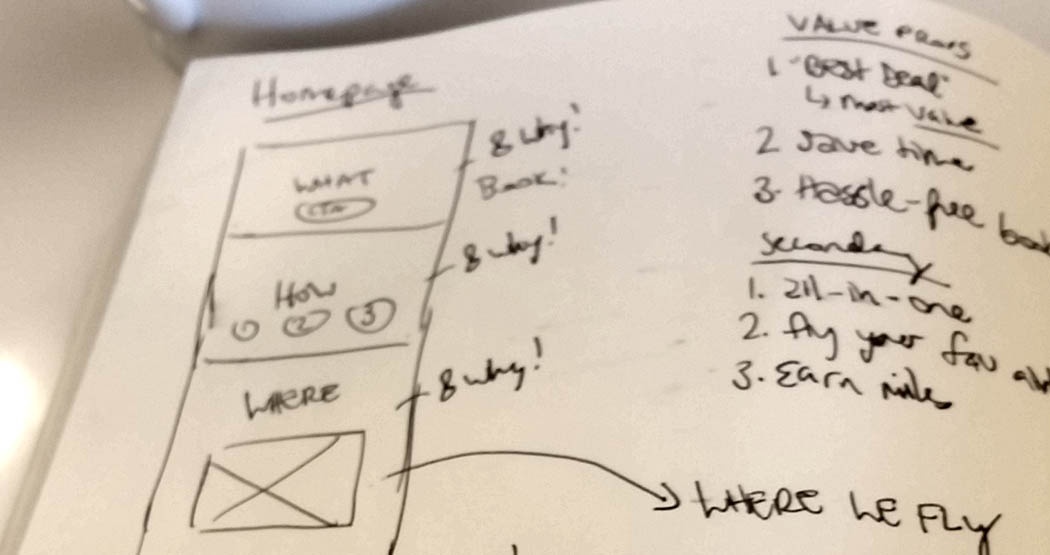 Homepage
WHAT
CTA
& why!
Book!
HOW
1 2 3
& why!
WHERE
& why!
WHERE WE FLY
VALUE PROPS
1. "BEST DEAL"
↳ most value
2 Save time
3. Hassle-free
Secondary
1. All-in-one
2. fly your fav
3. Earn miles